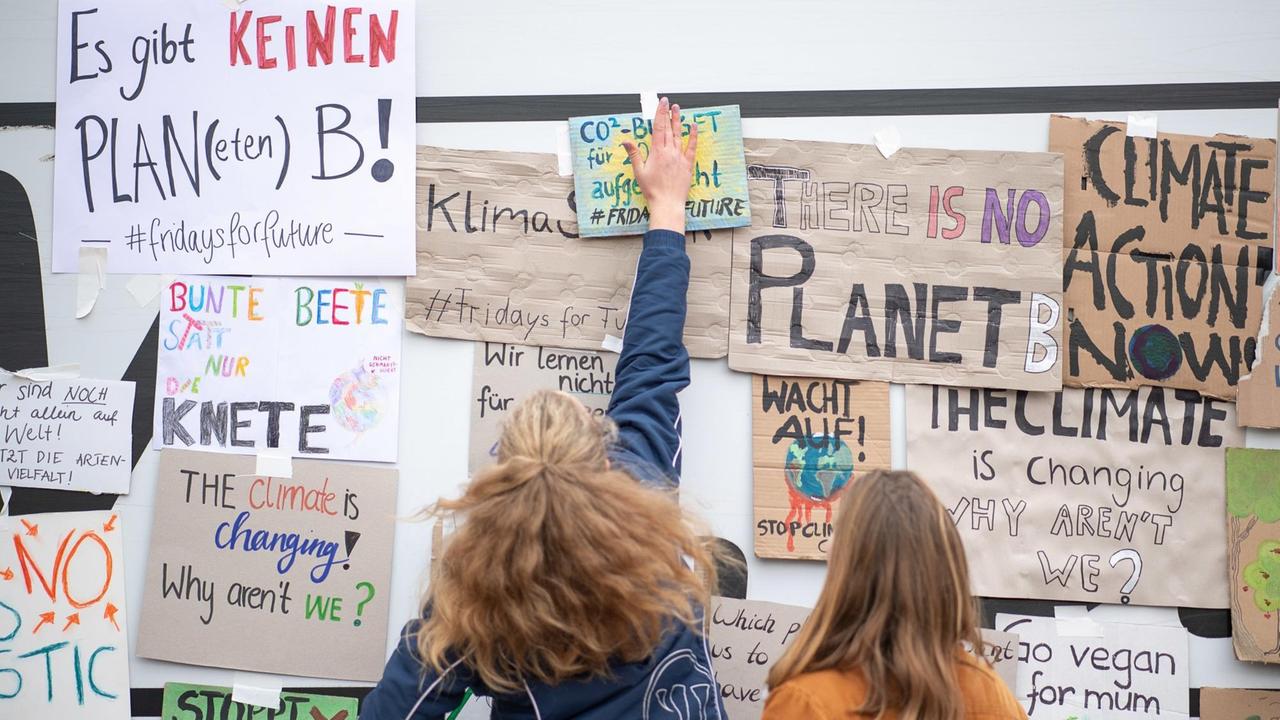 Es gibt KEINEN
PLAN(eten) B!
#fridaysforfuture
CO²-
für
#FRIDA FUTURE
Klima
#Fridays for
THERE IS NO
PLANET B
CLIMATE
ACTION
NOW!
BUNTE BEETE
STATT
NUR
DIE
KNETE
sind NOCH
allein auf
Welt!
DIE ARTEN-
VIELFALT!
Wir lernen
nicht
für
WACHT
AUF!
STOP
THE CLIMATE
is Changing
WHY AREN'T
WE?
THE Climate is
changing!
Why aren't WE?
NO
STOPPT
Which
us to
Go vegan
for mum